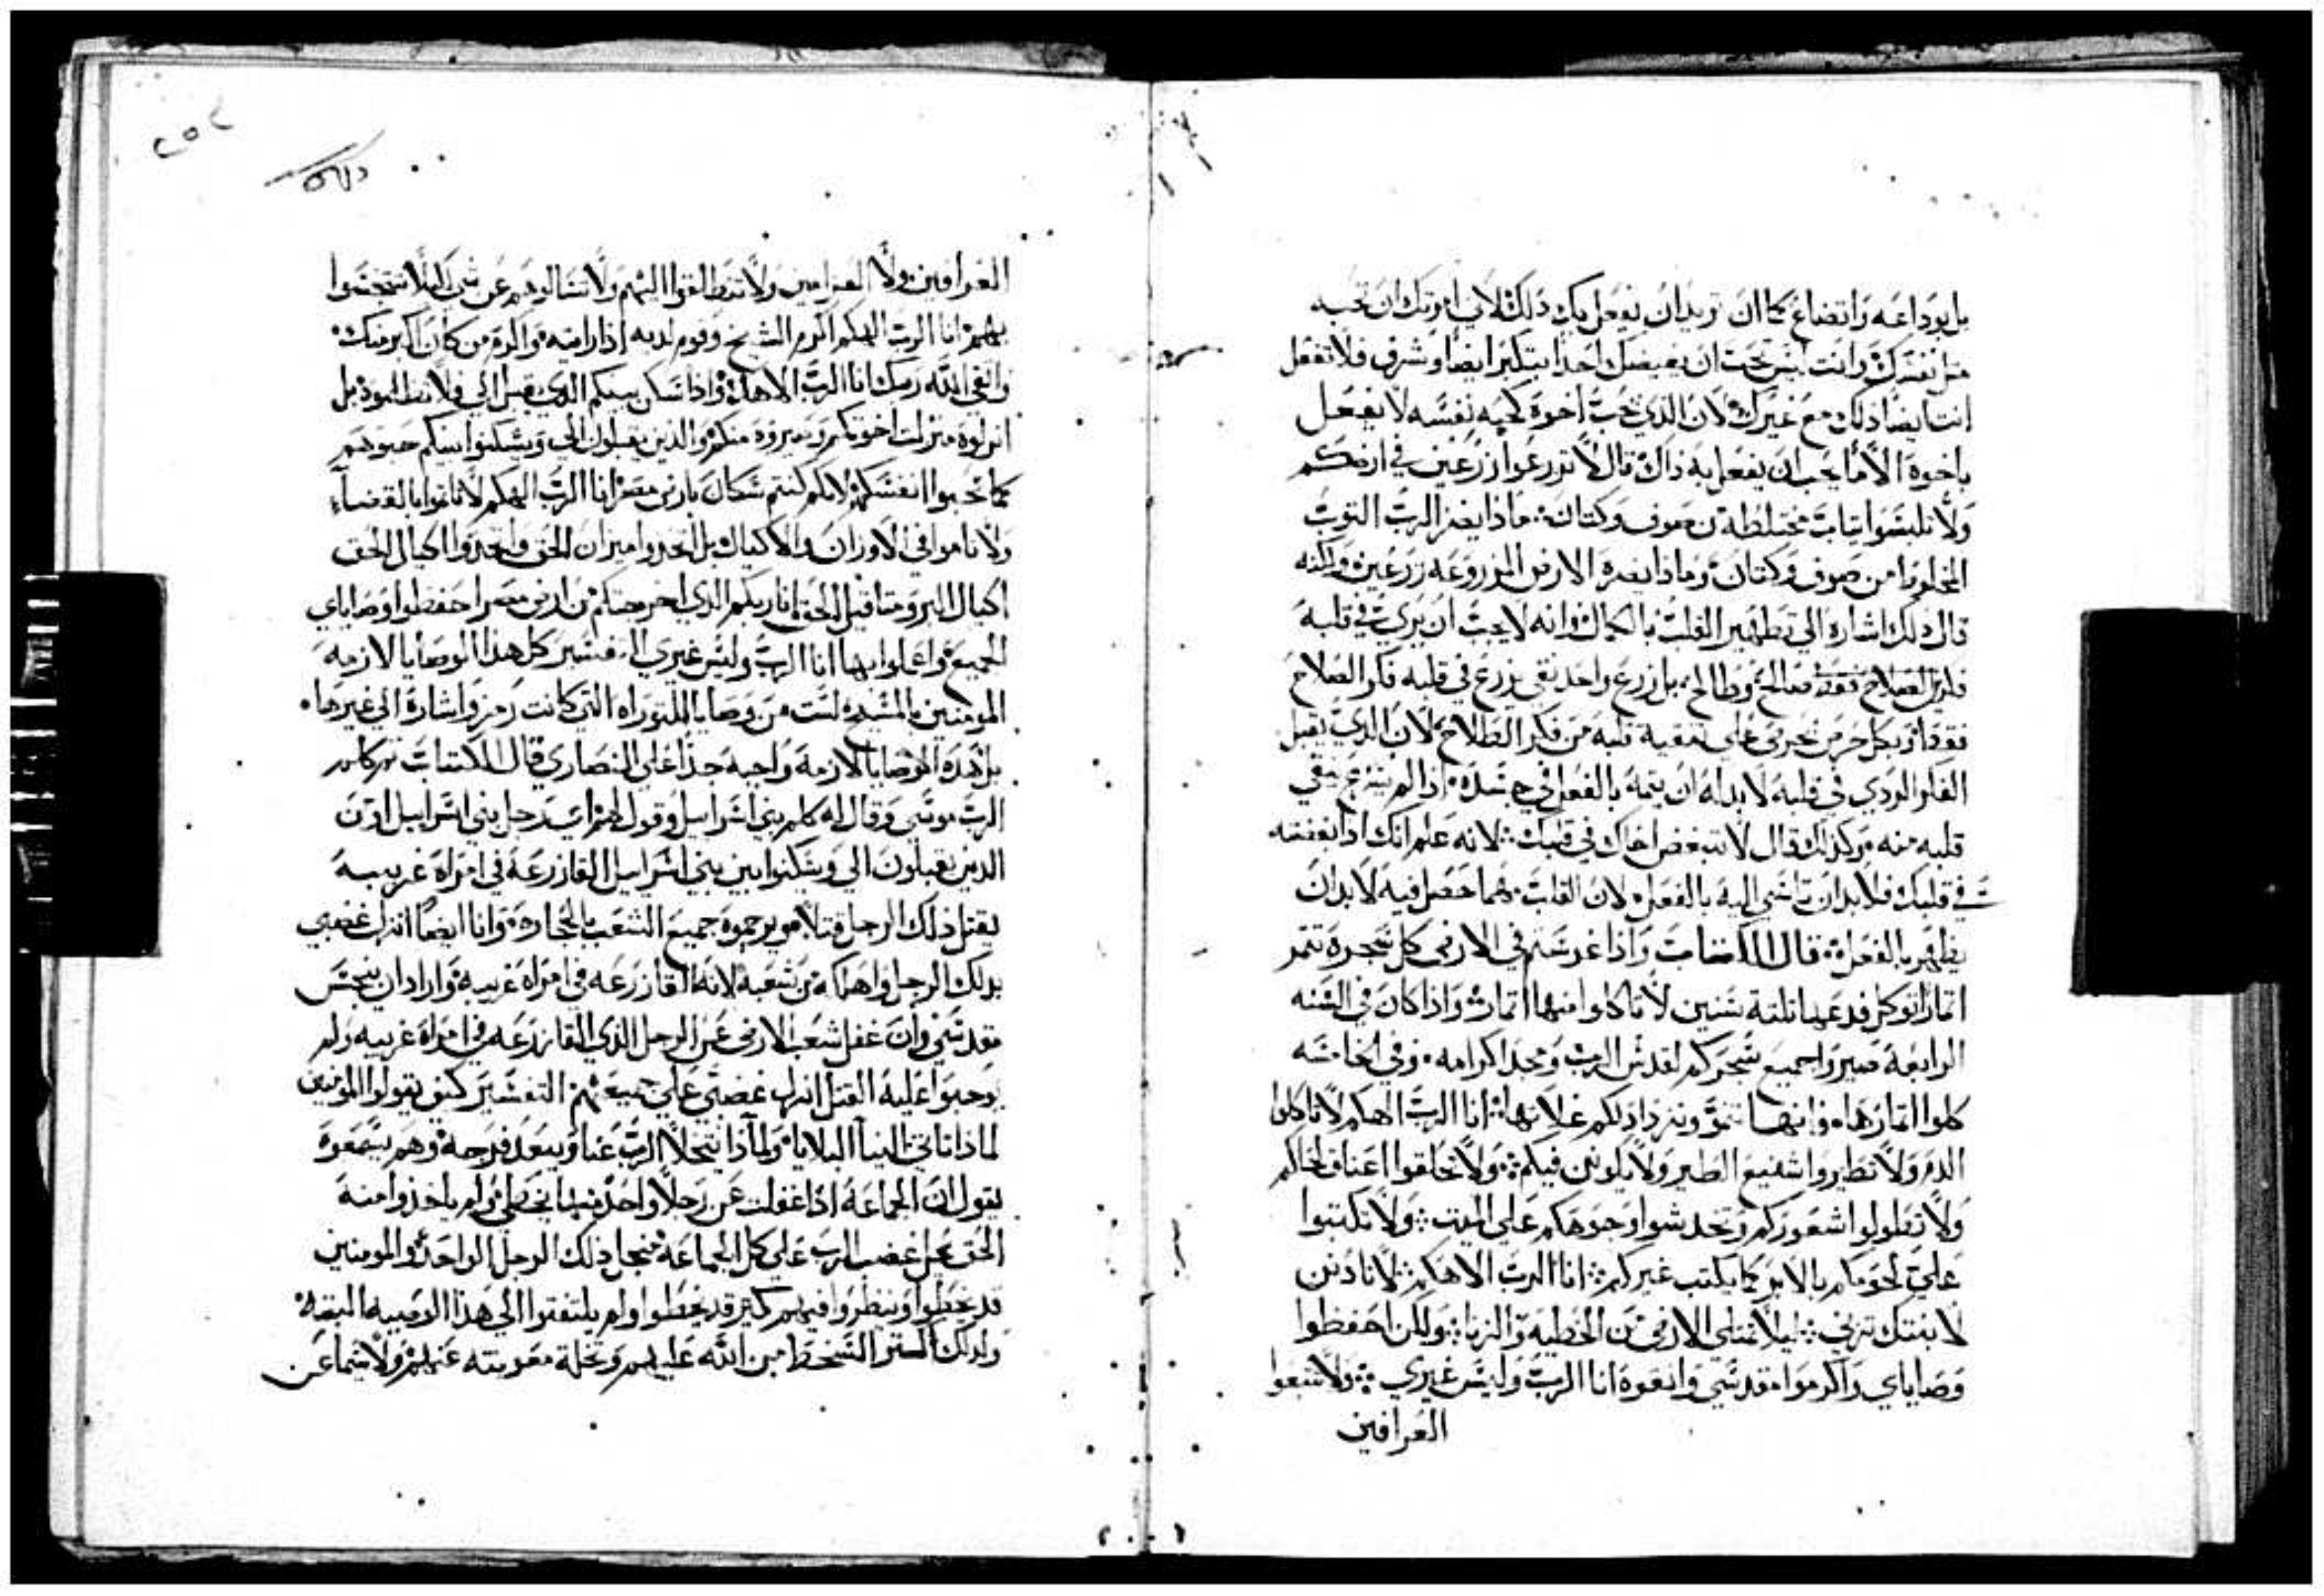 بل بوداعه واتضاع كما ان تريد ان يفعل بك ذلك لاني امرتك ان تحبه
مثل نفسك وانت ليس تحب ان يغيضك احدا بتكبر ايضا وشرف فلا تفعل
انت ايضا ذلك مع غيرك لان الذي تحب اخوه كحبه نفسه لا يفعل
باخوه الا ما يحب ان يفعل به ذاك قال لا تزرعوا زرعين في ارضكم
ولا تلبسوا تياب مختلطه من صوف وكتان ماذا يضر الرب التوب
المخلوط من صوف وكتان وماذا يضره الارض المزروعه زرعين ولكنه
قال ذلك اشاره الي تطهير القلب بالكمال وانه لا يجب ان يربي في قلبه
فكرين صالح وطالح بل زرع واحد نقي يزرع في قلبه فكر الصلاح
فقط وبكل حرص يحرص علي تنقية قلبه من فكر الطلاح لان الذي يقبل
الفكر الردي في قلبه لا بد له ان يتمه بالفعل في جسده اذا لم ينقي
قلبه منه وكذلك قال لا تبغض اخاك في قلبك لانه علم انك اذا بغضته
في قلبك فلا بد ان تاسي اليه بالفعل لان القلب مهما حصل فيه لا بد ان
يظهر بالفعل قال الكتاب واذا غرستم في الارض كل شجره تتمر
اتمارا توكل فدعها تلتة سنين لا تاكلوا منها اتمار واذا كان في السنه
الرابعة صيروا جميع شجركم لقدس الرب ومجد اكرامه وفي الخامسه
كلوا اتمارها فانها تنمو وتزداد لكم غلاتها انا الرب الهكم لا تاكلوا
الدم ولا تطيروا شنيع الطير ولا يكونن فيكم ولا تحلقوا اعناق لحاكم
ولا تطولوا شعوركم وتخدشوا وجوهكم علي الميت ولا تكتبوا
علي لحومكم بالابر كما يكتب غيركم انا الرب الاهكم لا تادنن
لابنتك تزني ليلا تمتلي الارض من الخطيه والزنا ولكن احفظوا
وصاياي واكرموا مقدسي واتقوه انا الرب وليس غيري ولا تتبعوا
العرافين
العرافين ولا العزامين ولا تنطالقوا اليهم ولا تسالوهم عن شي ليلا تتنجسوا
بهم انا الرب الهكم اكرم الشيخ وقوم لديه اذا رايته واكرم من كان اكبر منك
واتقي الله ربك انا الرب الاهك واذا سكن بينكم الذي يقبل الي فلا تطردوه بل
انزلوه منزلت اخوتكم وصيروه منكم والذين يقبلون الي ويسكنوا بينكم حبوهم
كما تحبوا انفسكم لانكم كنتم سكان بارض مصر انا الرب الهكم لا تاتموا بالقضاء
ولا تاموا في الاوزان والاكيال بل اتخدوا ميزان الحق واتخدوا اكيال الحق
اكيال البر ومتاقيل الحق انا ربكم الذي اخرجتكم من ارض مصر احفظوا وصاياي
الجميع واعملوا بها انا الرب وليس غيري التفسير كل هذا الوصايا لازمه
المومنين بالمسيح ليست من وصايا التوراه التي كانت رمز واشارة الي غيرها
بل هده الوصايا لازمه واجبه جدا علي النصاري قال الكتاب تم كلم
الرب موسي وقال له كلم بني اسراييل وقول لهم اي رجل بني اسراييل او من
الدين يقبلون الي ويسكنوا بين بني اسراييل القا زرعه في امراه غريبه
يقتل ذلك الرجل قتلا هو يرجموه جميع الشعب بالحجاره وانا ايضا انزل غضبي
بدلك الرجل واهلكه من شعبه لانه القا زرعه في امراه غريبه واراد ان ينجس
مقدسي وان غفل شعب الارض عن الرجل الذي القا زرعه في امراه غريبه ولم
يوجبوا عليه القتل انزل غضبي علي جميعهم التفسير كيف يقولوا المومنين
لماذا تاتي الينا البلايا ولماذا يتخلا الرب عنا ويبعد فرجه وهم يسمعوه
يقول ان الجماعه اذا غفلت عن رجلا واحد منها يخطي ولم ياخذوا منه
الحق يحل غضب الرب علي كل الجماعه منجل ذلك الرجل الواحد والمومنين
قد يخطوا وينظروا فيهم كتير قد يخطوا ولم يلتفتوا الي هذا الوصيه البته
ولدلك استتر السخط من الله عليهم وتخلة معونته عنهم ولا سيما عن